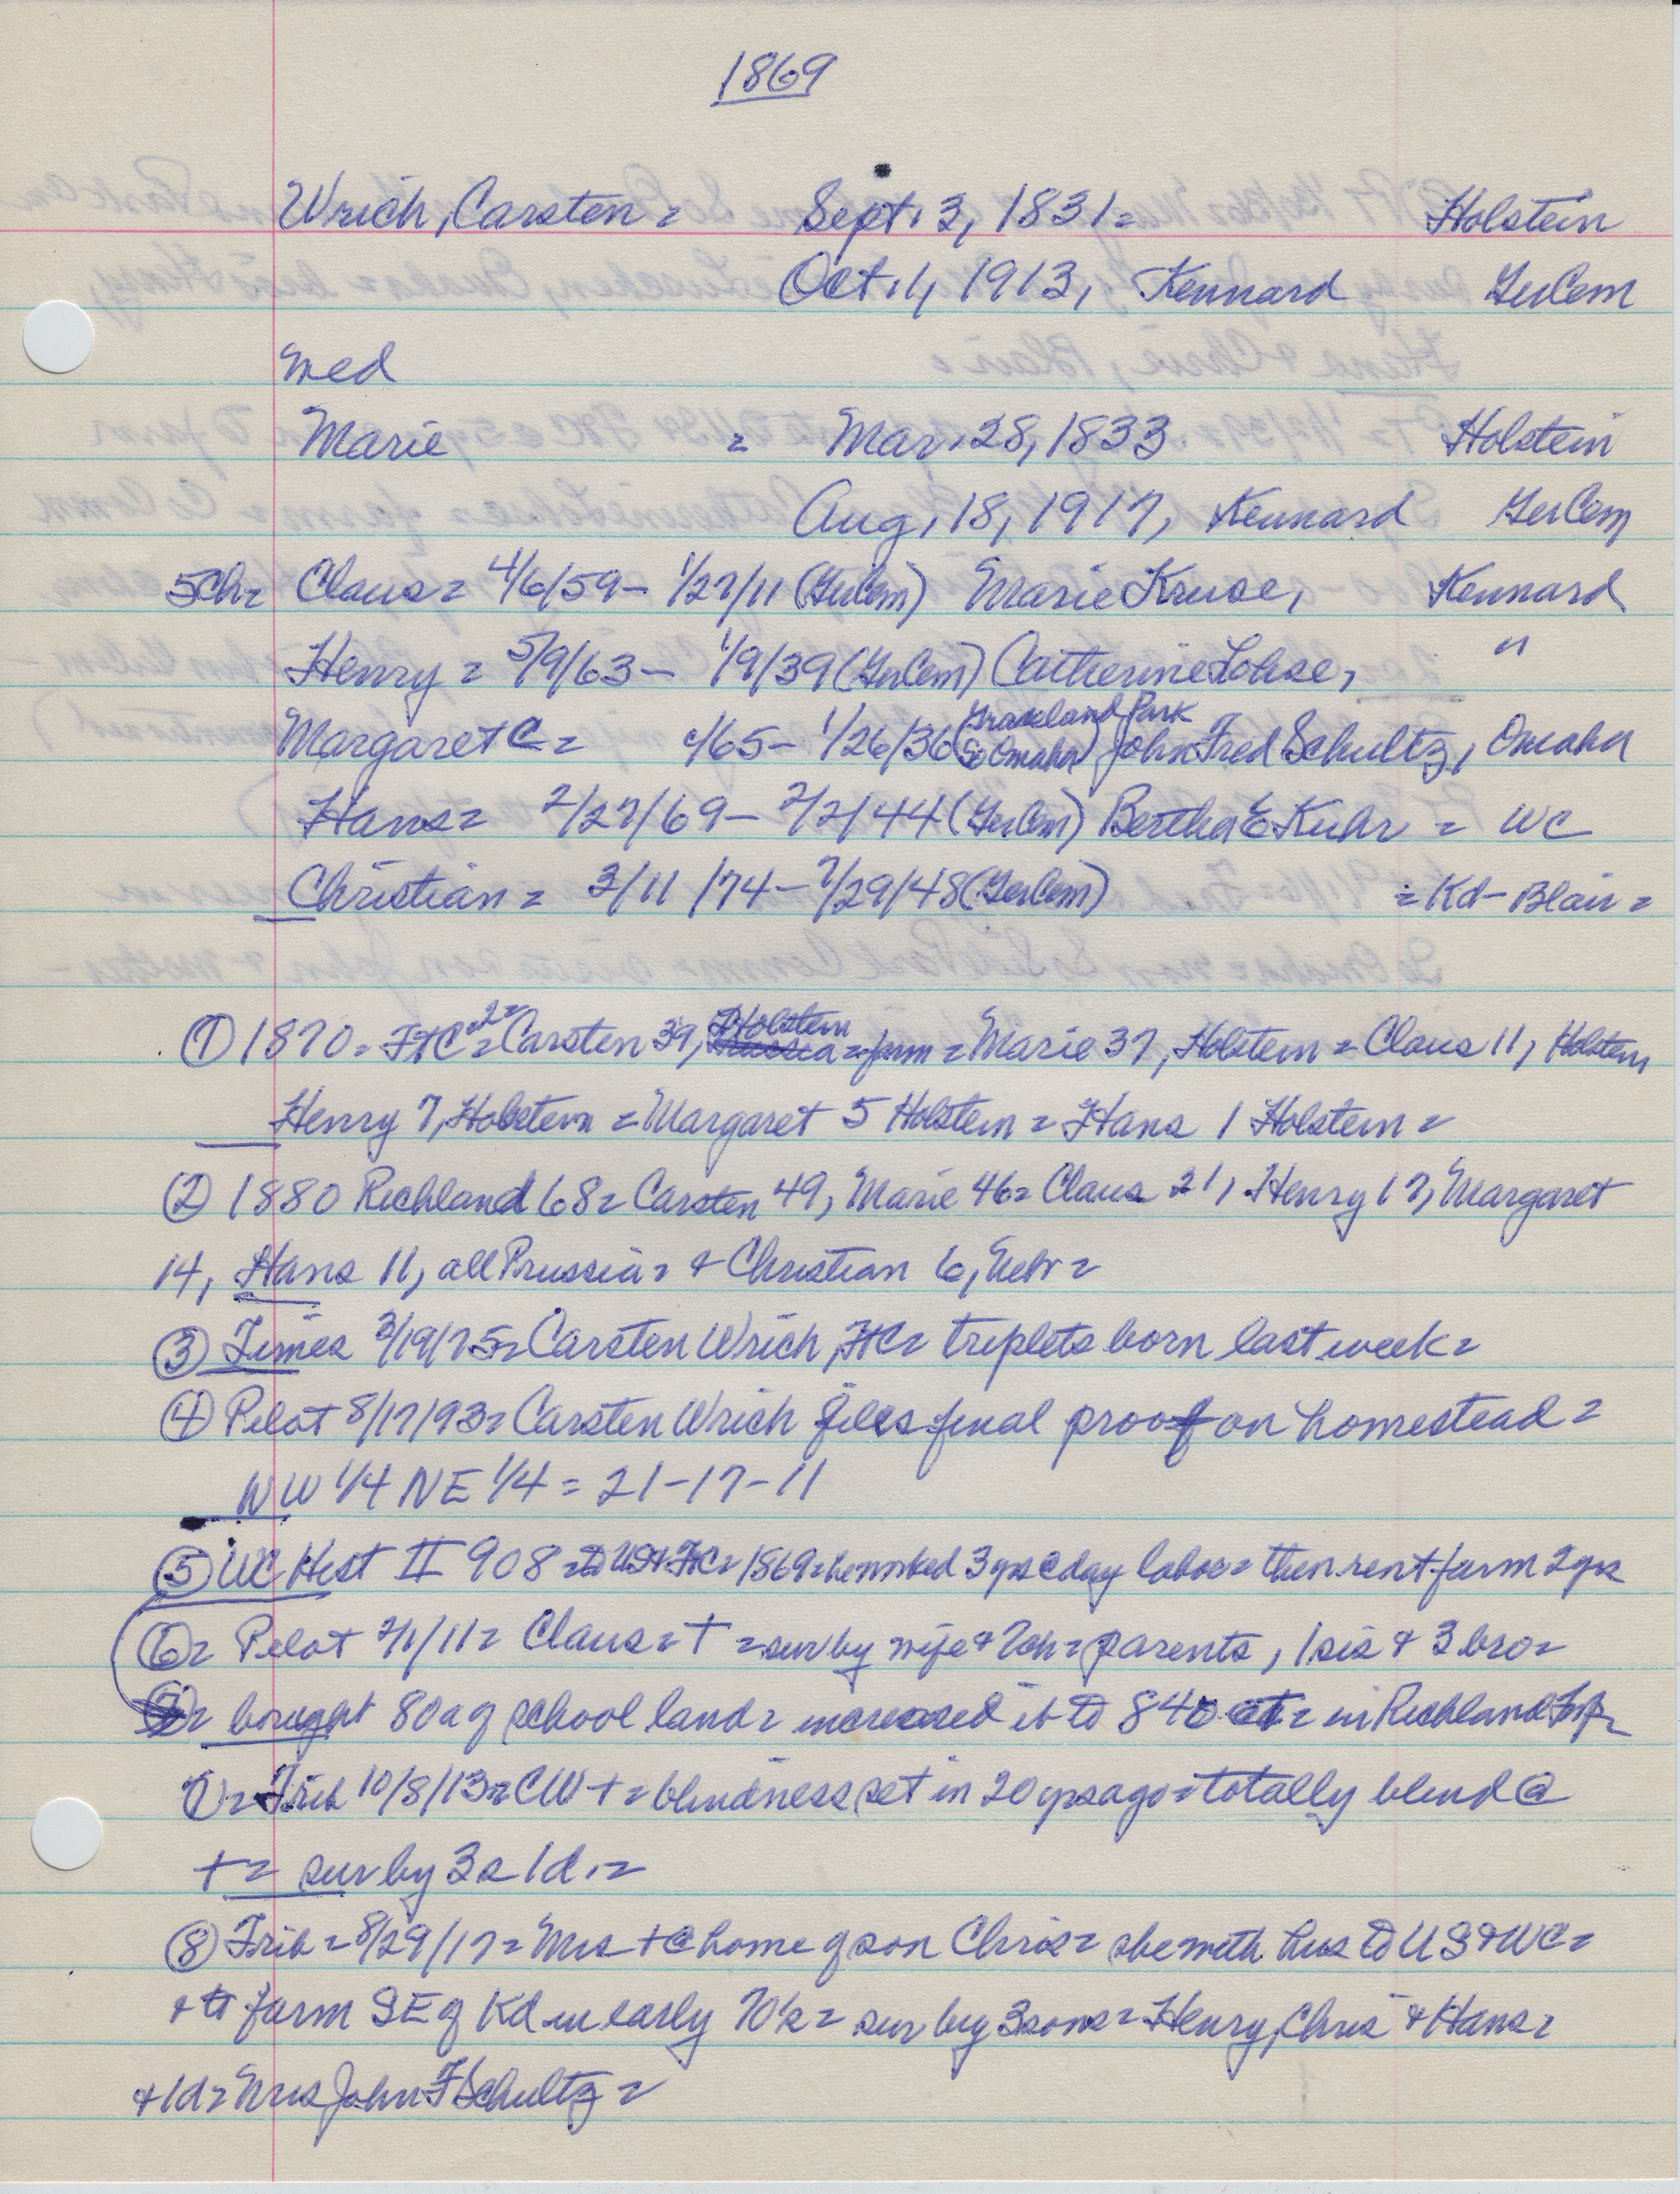 1869
Wrich, Carsten = Sept. 3, 1831 = Holstein
Oct. 1, 1913, Kennard GerCem
med
Marie = Mar. 28, 1833 Holstein
Aug. 18, 1917, Kennard GerCem
5Ch= Claus = 4/6/59 - 1/27/11 (GerCem) Marie Kruse, Kennard
Henry = 5/9/63 - 1/9/39 (GerCem) Catherine Lohse, "
Margaret C = c/65 - 1/26/36 (Graceland Park So Omaha) John Fred Schultz, Omaha
Hans = 2/27/69 - 2/2/44 (GerCem) Bertha E Kuhr = WC
Christian = 3/11/74 - 7/29/48 (GerCem) = Kd - Blair =
① 1870 = FtC = 2 = Carsten 39, Holstein = farm = Marie 37, Holstein = Claus 11, Holstein
Henry 7, Holstein = Margaret 5 Holstein = Hans 1 Holstein =
② 1880 Richland 68 = Carsten 49, Marie 46 = Claus 21, Henry 17, Margaret
14, Hans 11, all Prussia = + Christian 6, Nebr =
③ Times 3/19/75 = Carsten Wrich, FtC = triplets born last week =
④ Pilot 8/17/93 = Carsten Wrich files final proof on homestead =
NW 1/4 NE 1/4 = 21-17-11
⑤ WC Hist II 908 = to US + FtC = 1869 = he worked 3 yrs @ day labor = then rent farm 2 yrs
⑥ = Pilot 2/1/11 = Claus = + = sur by wife + 7ch = parents, 1 sis + 3 bro =
bought 80a of school land = increased it to 840 = in Richland Twp
= Trib 10/8/13 = CW + = blindness set in 20 yrs ago = totally blind @
+ = sur by 3s 1d. =
⑧ Trib = 8/29/17 = Mrs + @ home of son Chris = she with hus to US + WC =
+ to farm SE of Kd in early 70's = sur by 3 sons = Henry, Chris + Hans =
+ 1d = Mrs John F Schultz =